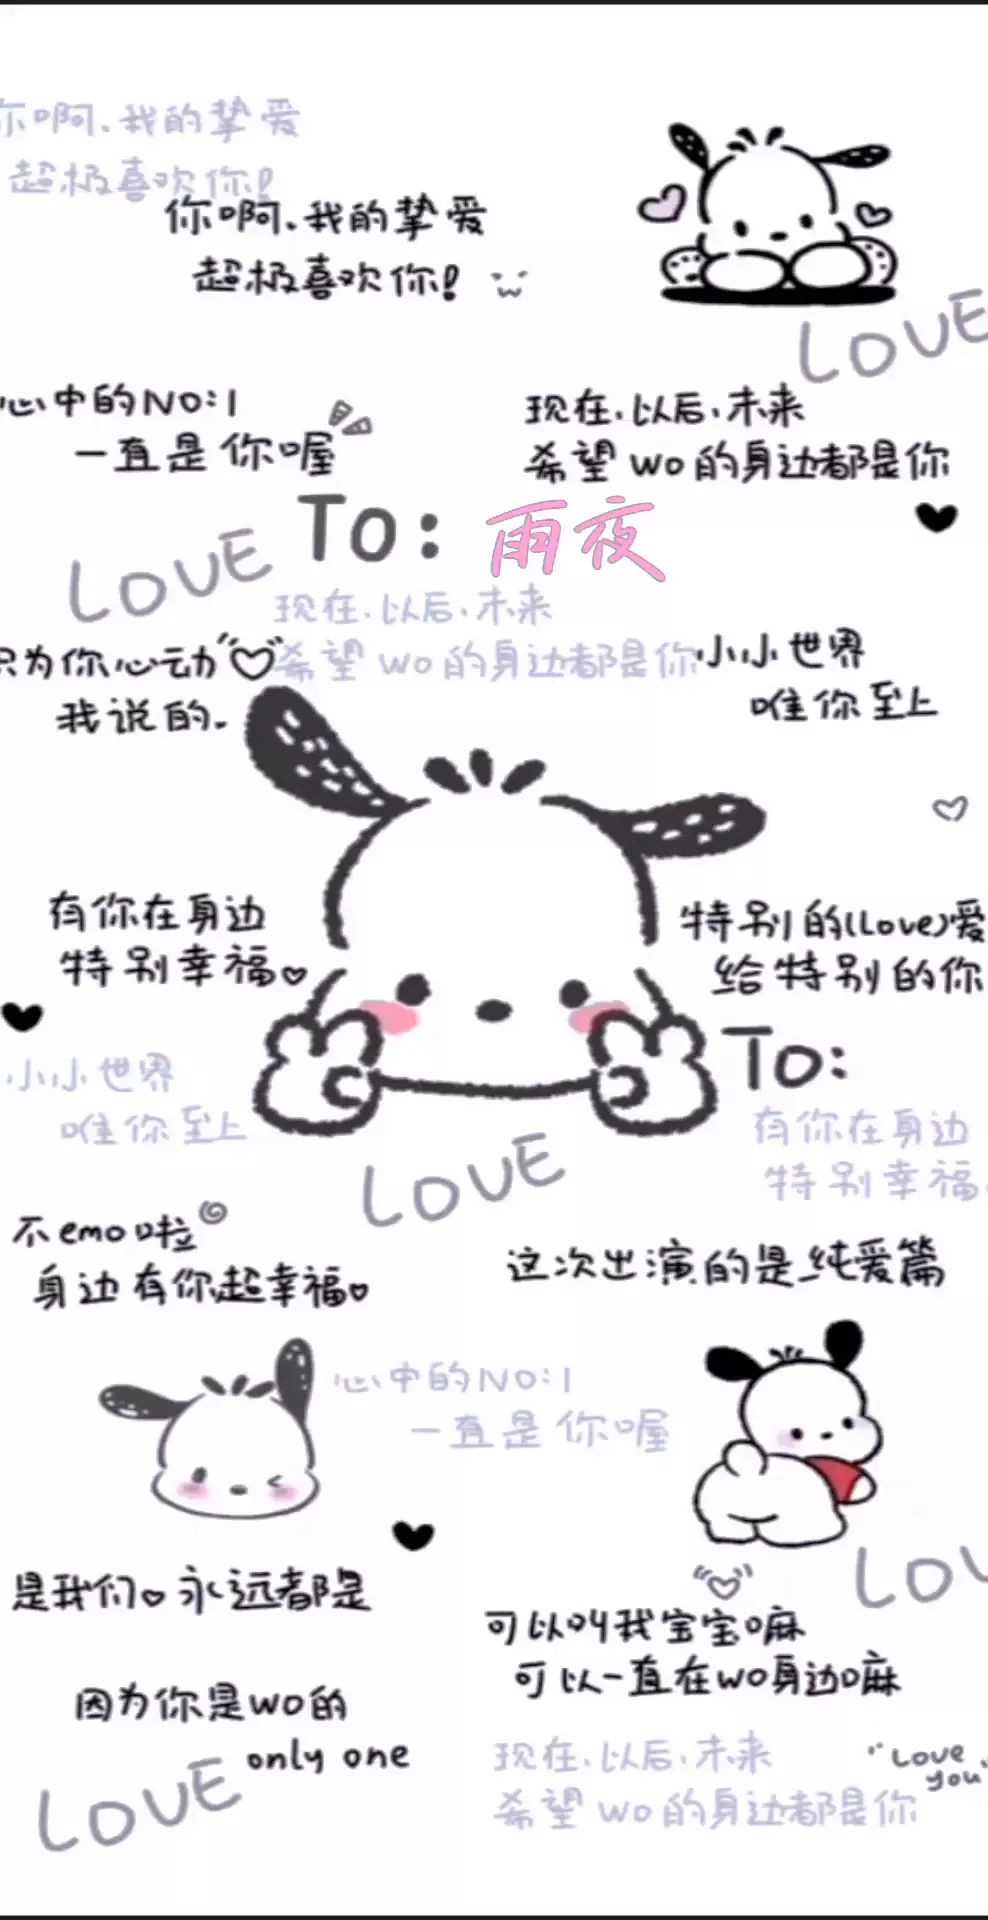 你啊、我的挚爱
超极喜欢你!
你啊、我的挚爱
超极喜欢你!
LOVE
心中的NO:1
一直是你喔
现在、以后、未来
希望wo的身边都是你
To:雨夜
LOVE
现在、以后、未来
希望wo的身边都是你
只为你心动
我说的.
小小世界
唯你至上
有你在身边
特别幸福
特别的(Love)爱
给特别的你
To:
小小世界
唯你至上
有你在身边
特别幸福
LOVE
不emo啦
身边有你超幸福
这次出演的是纯爱篇
心中的NO:1
一直是你喔
LOV
是我们 永远都是
可以叫我宝宝嘛
可以一直在wo身边嘛
因为你是wo的
only one
现在、以后、未来
希望wo的身边都是你
Love
you
LOVE